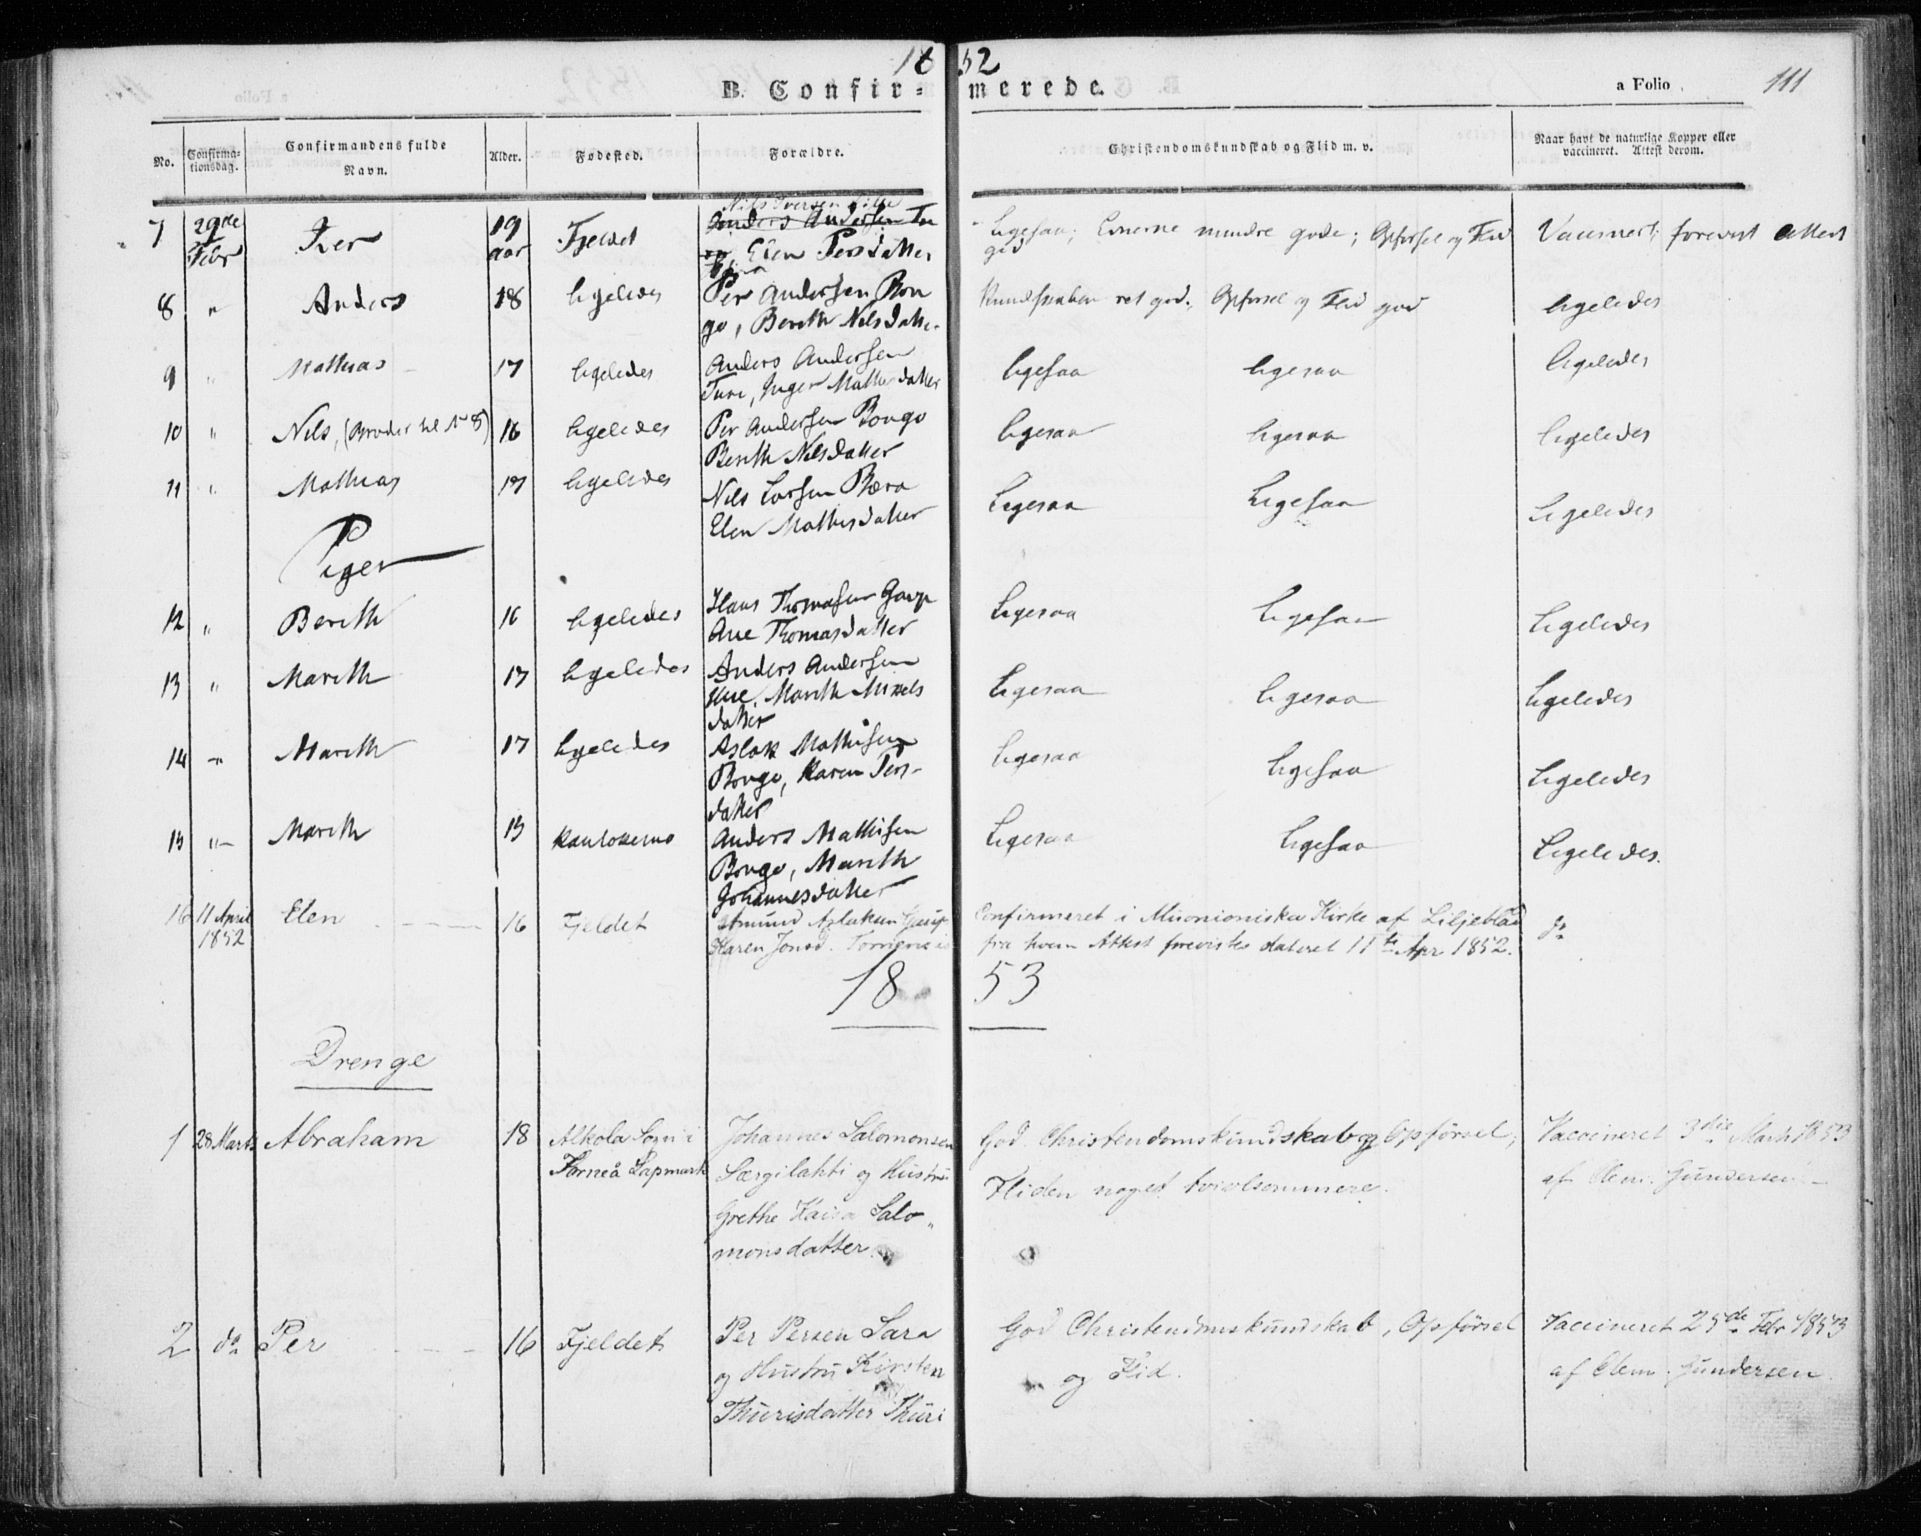 1852
B. Confirmerede.
a Folio 111
No.
Confirmationsdag.
Confirmandens fulde Navn.
Alder.
Fødested.
Forældre.
Christendomskundskab og Flid m. v.
Naar havt de naturlige Kopper eller vaccineret. Attest derom.
7 29de Febr Per 19 aar Fjeldet Nils Iversen
Anders Andersen
Elen Persdatter
Ligesaa; Evnerne mindre gode; Opførsel og Flid god
Vaccineret; forevist Attest
8 " Anders 18 ligeledes Per Andersen Bon
go, Berith Nilsdatter
Kundskaben ret god. Opførsel og Flid god ligeledes
9 " Mathias 17 ligeledes Anders Andersen
Turi, Inger Mathisdatter
ligesaa ligesaa ligeledes
10 " Nils, (Broder til No 8) 16 ligeledes Per Andersen Bongo
Berith Nilsdatter
ligesaa ligesaa ligeledes
11 " Mathias 17 ligeledes Nils Larsen Bæra
Elen Mathisdatter
Ligesaa Ligesaa Ligeledes
Piger
12 " Berith 16 ligeledes Hans Thomasen Gaup
Ane Thomasdatter
Ligesaa Ligesaa Ligeledes
13 " Marith 17 ligeledes Anders Andersen
Marith Mikels
datter
Ligesaa ligesaa Ligeledes
14 " Marith 17 ligeledes Aslak Mathisen
Bongo, Karen Pers-
datter
Ligesaa ligesaa Ligeledes
15 " Marith 15 Kautokeino Anders Mathisen
Bongo, Marith
Johannesdatter
Ligesaa Ligesaa Ligeledes.
16 11 April 1852 Elen 16 Fjeldet Amund Aslaksen Gaup
Karen Jonsd.
Confirmeret i Muonioniska Kirke af Liljeblad
fra hvem Attest forevistes dateret 11te Apr 1852.
do
1853
Drenge
1 28 Marts Abraham 18 Alkola Sogn i
Torneå Lapmark
Johannes Salomonsen
Særgilahti og Hustru
Grethe Kaisa Salo-
monsdatter.
God Christendomskundskab og Opførsel;
Fliden noget tvivlsommere.
Vaccineret 3die Marts 1853
af Clem. Gundersen
2 do Per 16 Fjeldet Per Persen Sara
og Hustru Kirsten
Thurisdatter Thuri
God Christendomskundskab, Opførsel
og Flid.
Vaccineret 25de Febr 1853
af Clem. Gundersen